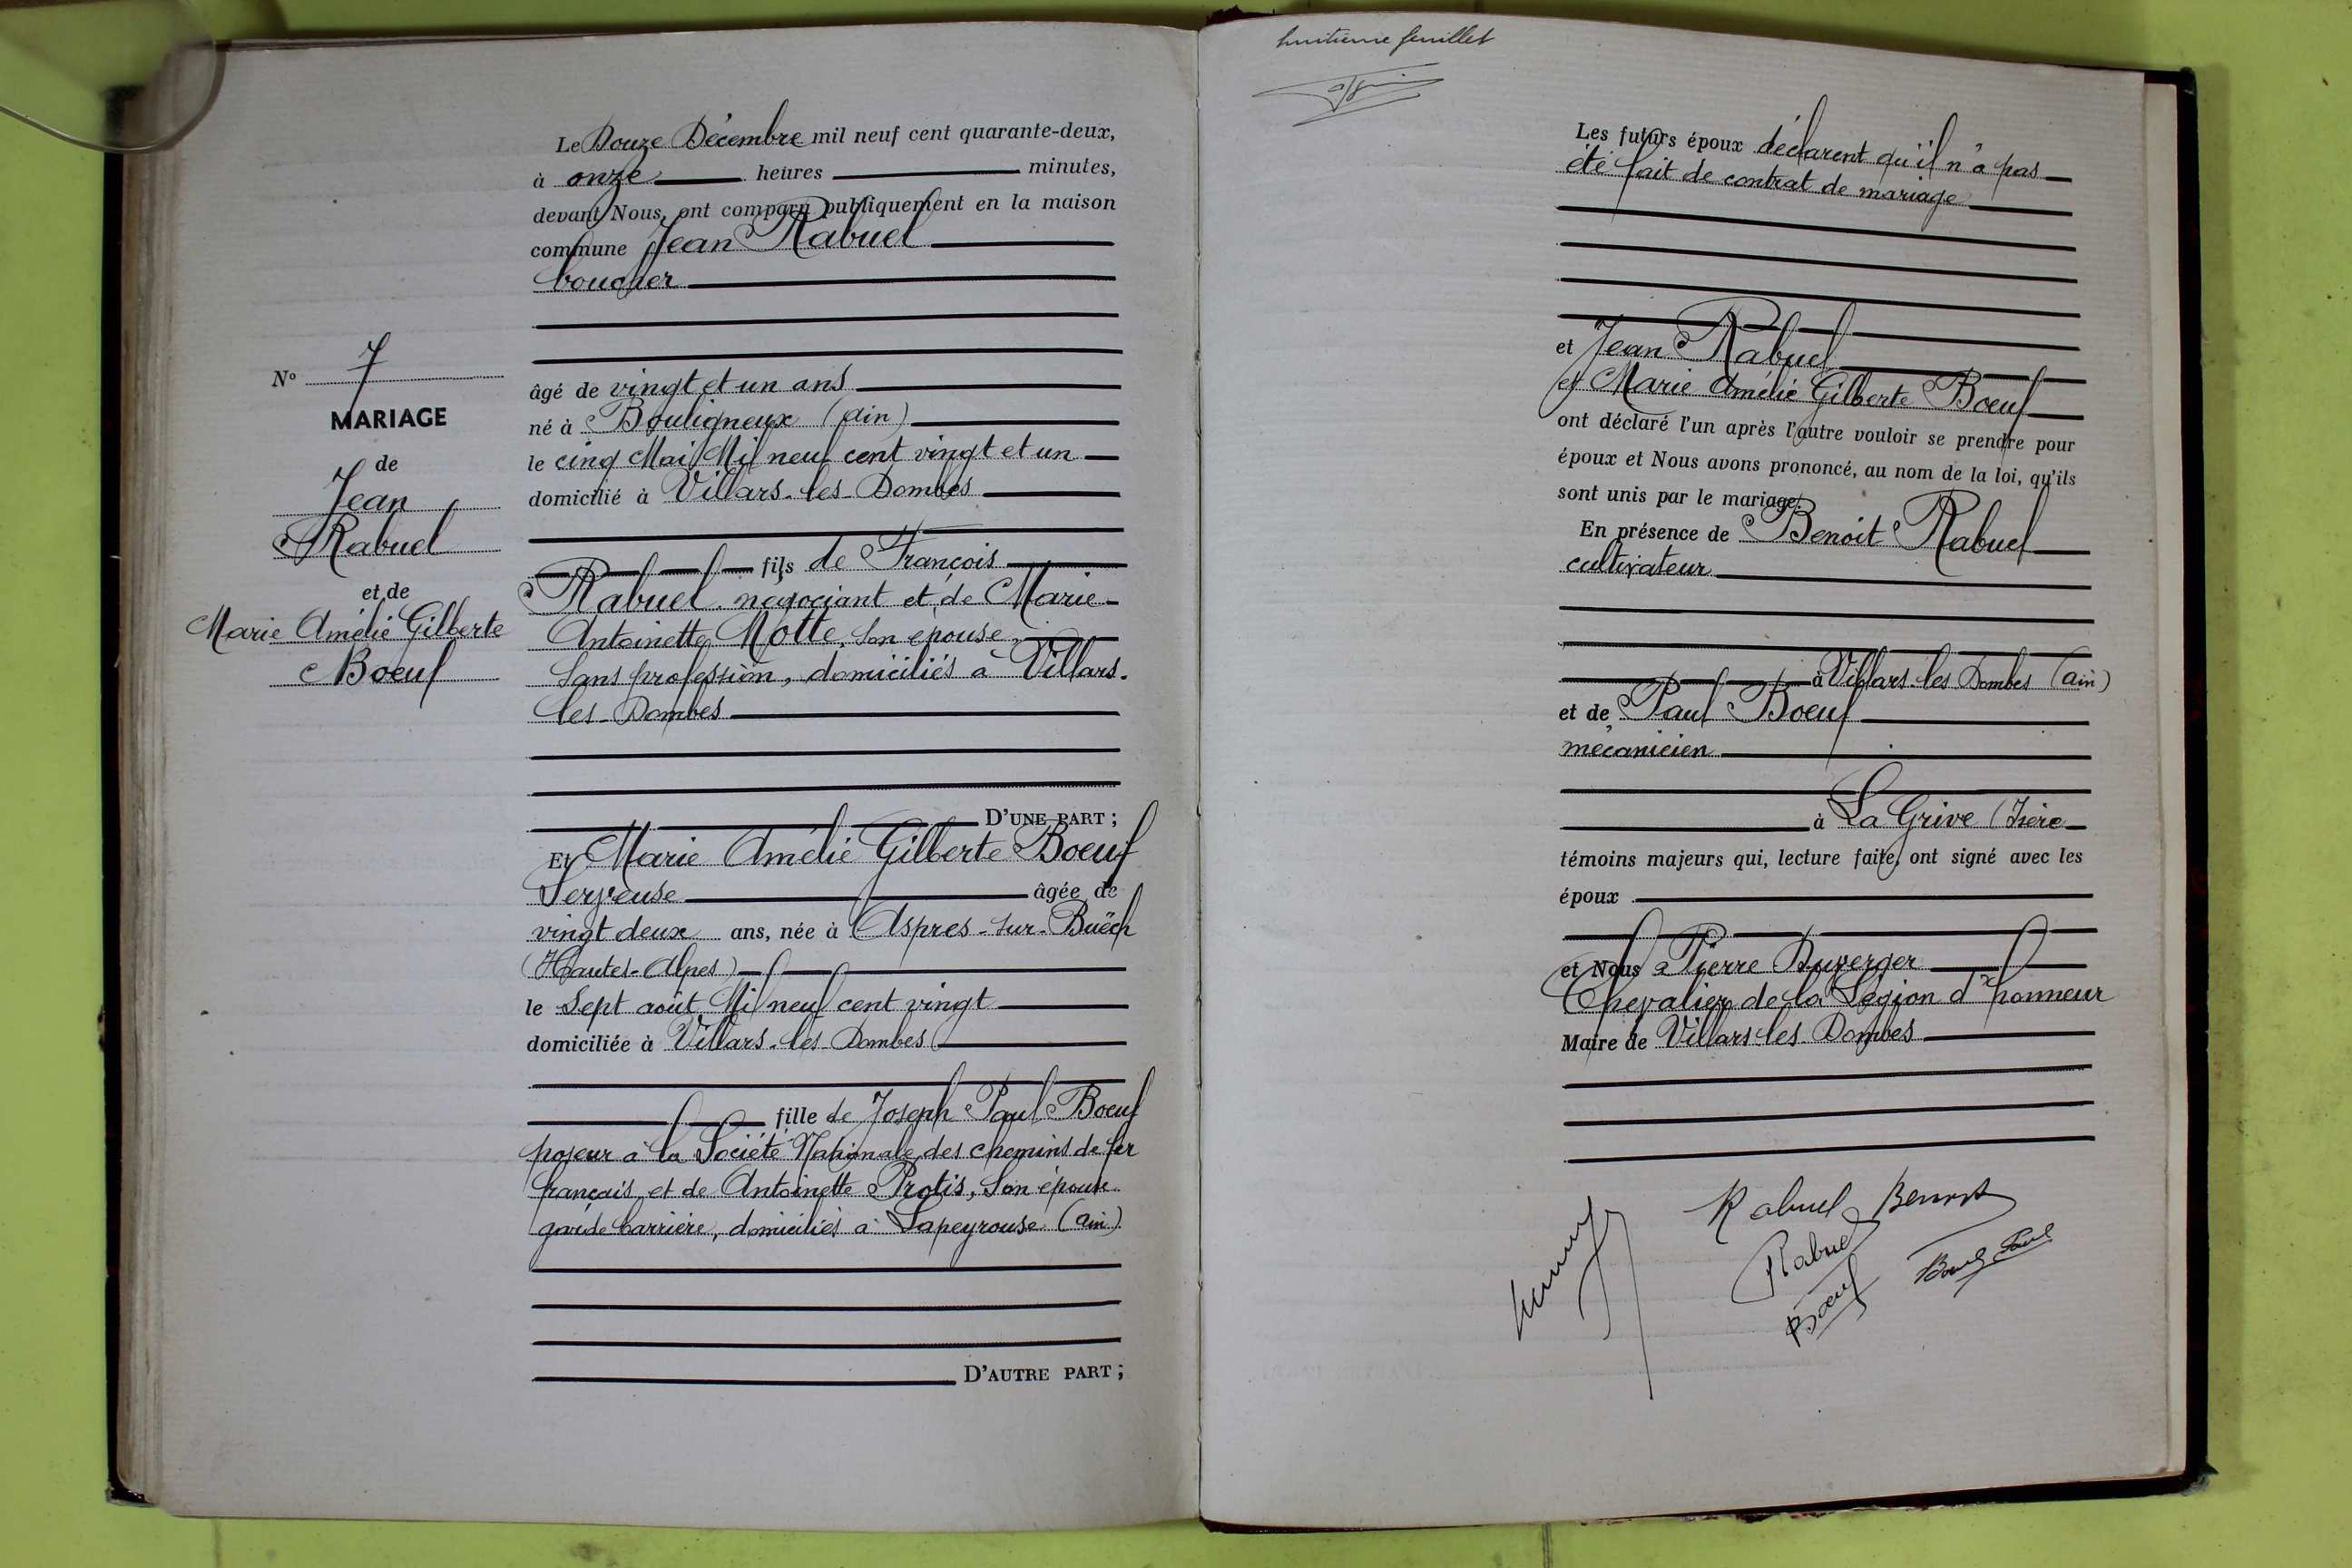 Le Douze Décembre mil neuf cent quarante-deux,
à onze heures minutes,
devant Nous, ont comparu publiquement en la maison
commune Jean Rabuel
boucher
âgé de vingt et un ans
né à Bouligneux (Ain)
le cinq Mai Mil neuf cent vingt et un
domicilié à Villars-les-Dombes
fils de François
Rabuel négociant et de Marie-
Antoinette Motte, son épouse,
sans profession, domiciliés à Villars-
les-Dombes
D'UNE PART ;
Nº 7
MARIAGE
de
Jean
Rabuel
et de
Marie Amélie Gilberte
Boeuf
Et Marie Amélie Gilberte Boeuf
Serveuse âgée de
vingt deux ans, née à Aspres-sur-Buëch
(Hautes-Alpes)
le sept août Mil neuf cent vingt
domiciliée à Villars-les-Dombes
fille de Joseph Paul Boeuf
poseur à la Société Nationale des chemins de fer
français et de Antoinette Protis, son épouse
garde barrière, domiciliés à Lapeyrouse (Ain)
D'AUTRE PART ;
huitième feuillet
Les futurs époux déclarent qu'il n'a pas
été fait de contrat de mariage
et Jean Rabuel
et Marie Amélie Gilberte Boeuf
ont déclaré l'un après l'autre vouloir se prendre pour
époux et Nous avons prononcé, au nom de la loi, qu'ils
sont unis par le mariage.
En présence de Benoit Rabuel
cultivateur
à Villars-les-Dombes (Ain)
et de Paul Boeuf
mécanicien
à La Grive (Isère
témoins majeurs qui, lecture faite, ont signé avec les
époux
et Nous Pierre Duverger
Chevalier de la Légion d'honneur
Maire de Villars-les-Dombes
Rabuel Benoit
Rabuel
Boeuf Paul
Boeuf